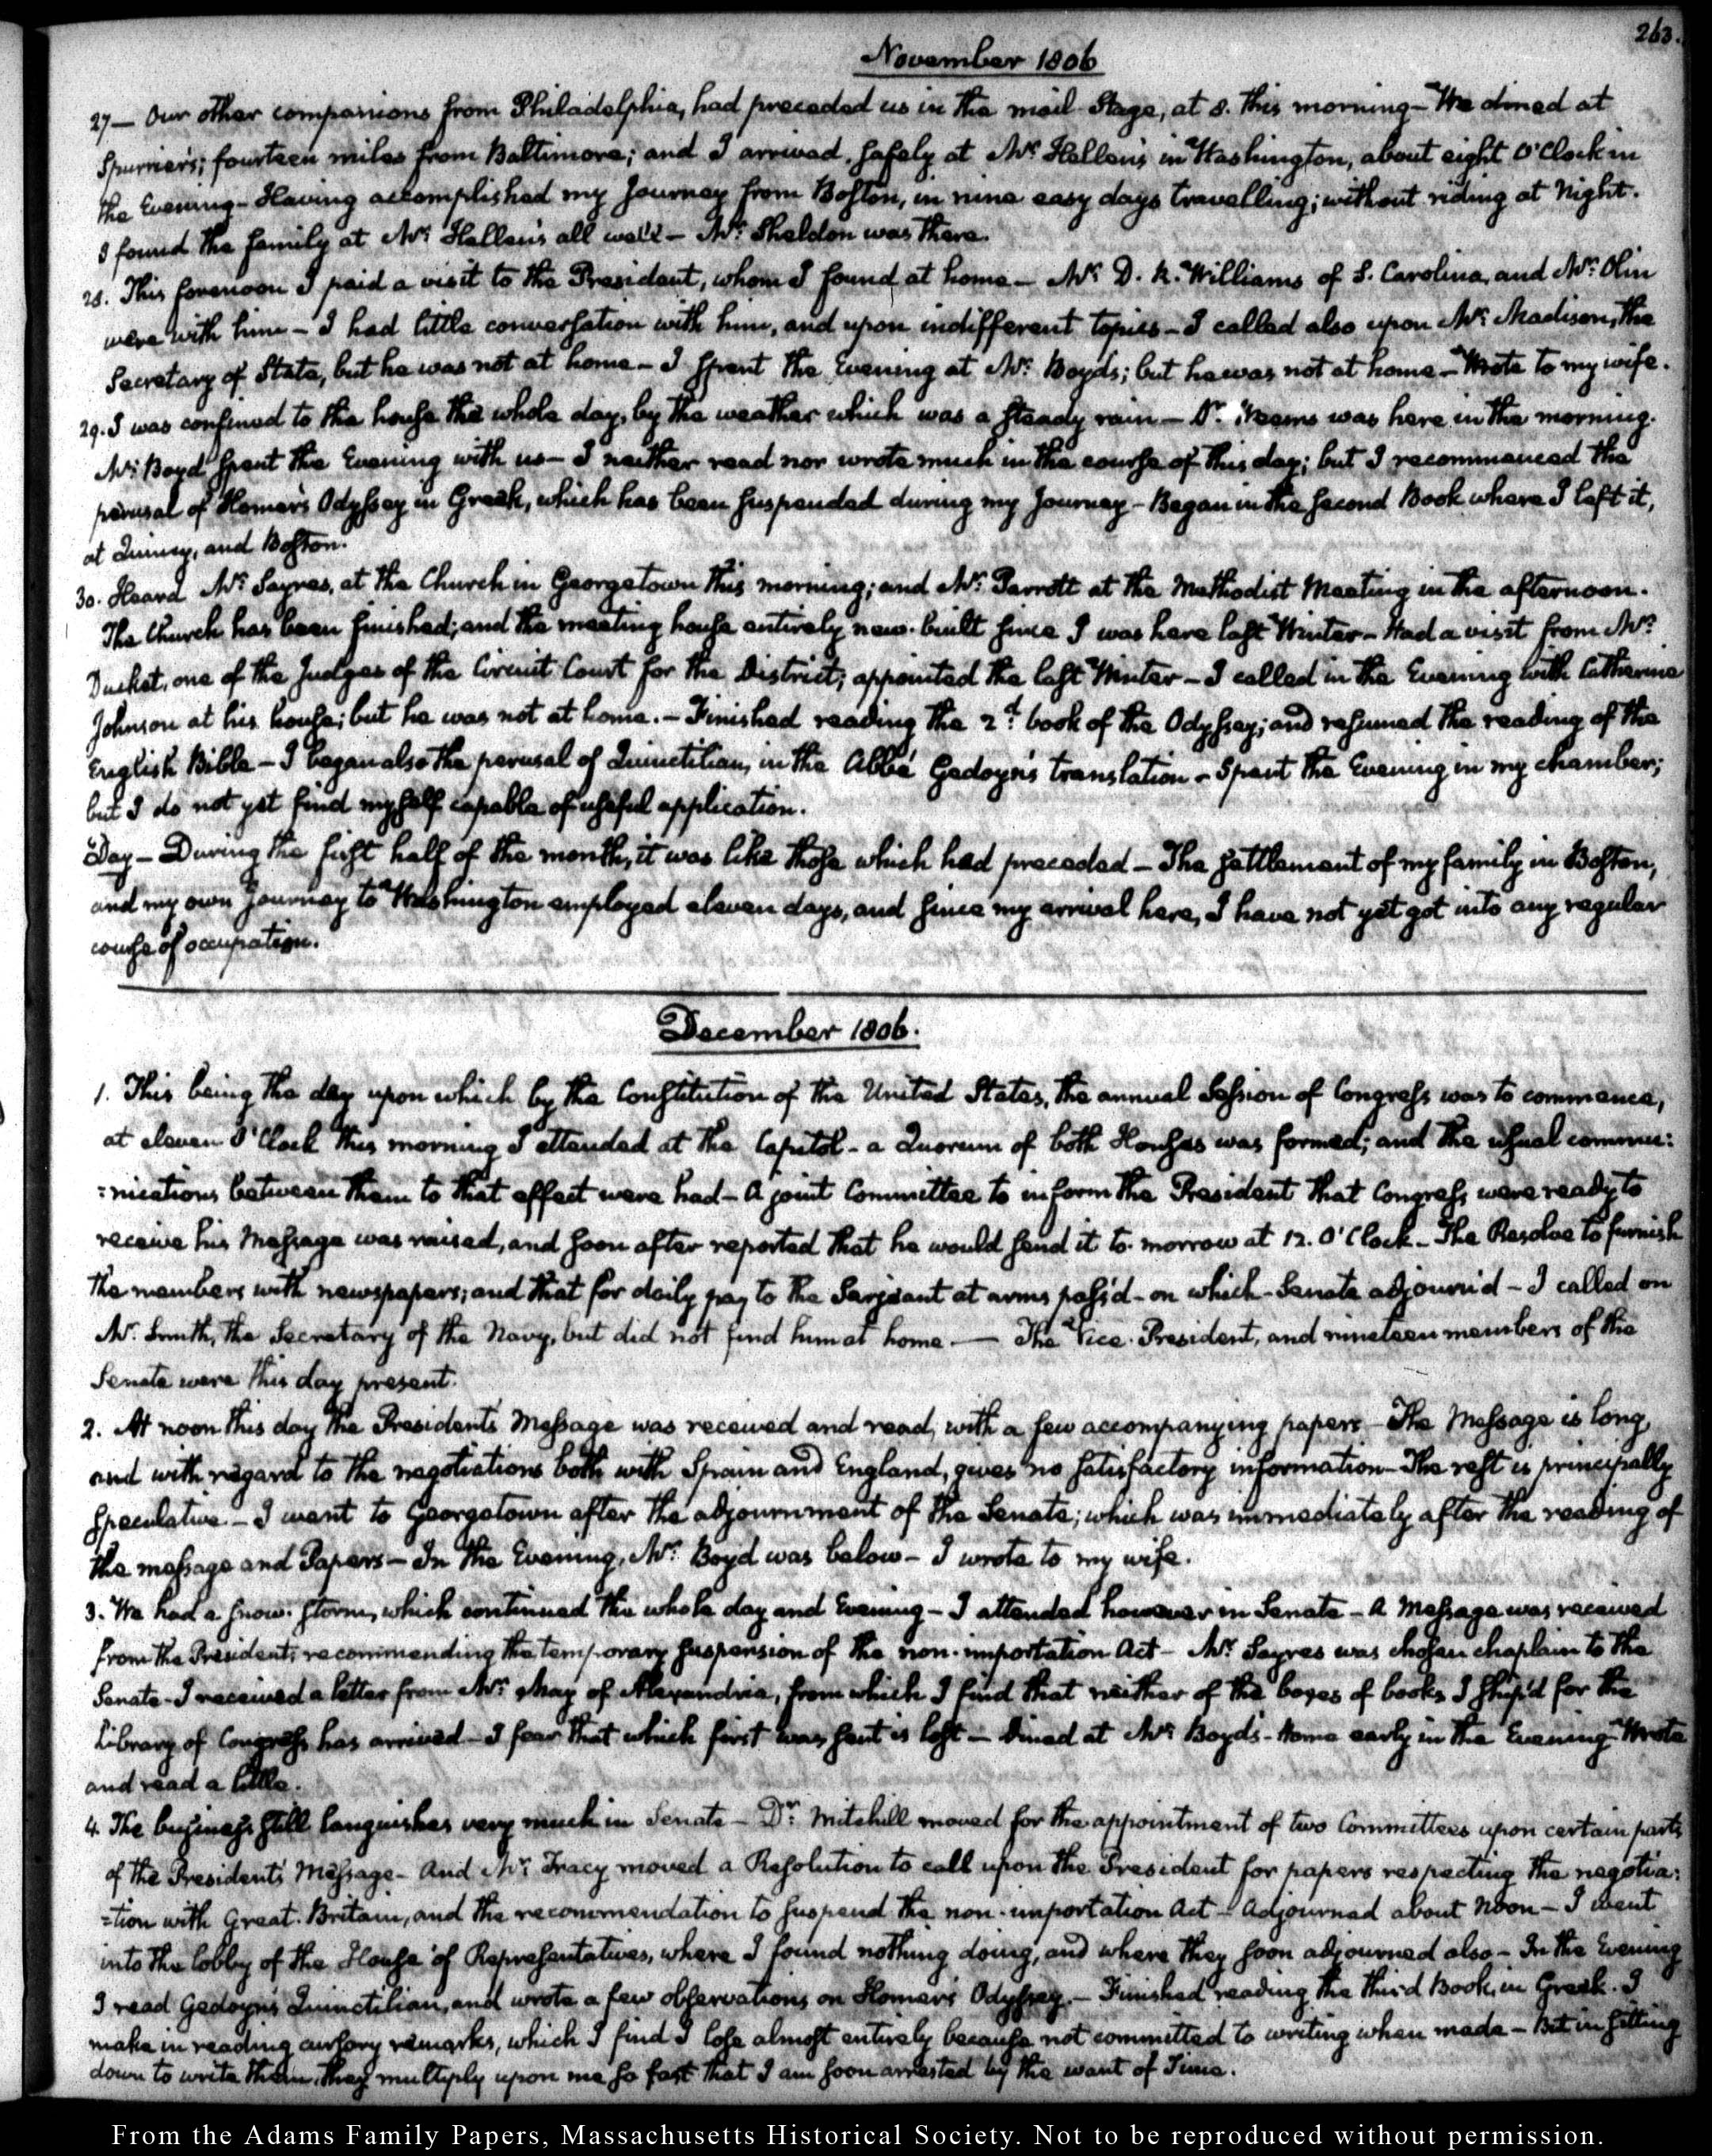 263.
November 1806
27 — Our other companions from Philadelphia, had preceded us in the mail Stage, at 8. this morning — We dined at
Spurrier's; fourteen miles from Baltimore; and I arrived safely at Mr. Hellen's in Washington, about eight O'Clock in
the Evening — Having accomplished my Journey from Boston, in nine easy days travelling; without riding at Night.
I found the family at Mr. Hellen's all well — Mr. Sheldon was there.
28. This forenoon I paid a visit to the President, whom I found at home — Mr. D. R. Williams of S. Carolina, and Mr. Olin
were with him — I had little conversation with him, and upon indifferent topics — I called also upon Mr. Madison, the
Secretary of State, but he was not at home — I spent the Evening at Mr. Boyds; but he was not at home — Wrote to my wife.
29. I was confined to the house the whole day, by the weather which was a steady rain — Dr. Weems was here in the morning.
Mr. Boyd spent the Evening with us — I neither read nor wrote much in the course of this day; but I recommenced the
perusal of Homer's Odyssey in Greek, which has been suspended during my Journey — Began in the second Book where I left it,
at Quincy, and Boston.
30. Heard Mr. Sayres, at the Church in Georgetown this morning; and Mr. Parrott at the Methodist Meeting in the afternoon.
The Church has been finished; and the meeting house entirely new-built since I was here last Winter — Had a visit from Mr.
Ducket, one of the Judges of the Circuit Court for the District; appointed the last Winter — I called in the Evening with Catherine
Johnson at his house; but he was not at home. — Finished reading the 2d. book of the Odyssey; and resumed the reading of the
English Bible — I began also the perusal of Quinctilian, in the Abbé Gedoyn's translation — Spent the Evening in my chamber;
but I do not yet find myself capable of useful application.
Day — During the first half of the month, it was like those which had preceded — The settlement of my family in Boston,
and my own journey to Washington employed eleven days, and since my arrival here, I have not yet got into any regular
course of occupation.
December 1806.
1. This being the day upon which by the Constitution of the United States, the annual Session of Congress was to commence,
at eleven O'Clock this morning I attended at the Capitol — a Quorum of both Houses was formed; and the usual commu:
:nications between them to that effect were had — A joint Committee to inform the President that Congress were ready to
receive his Message was raised, and soon after reported that he would send it to-morrow at 12. O'Clock — The Resolve to furnish
the members with newspapers; and that for daily pay to the Sarjeant at arms pass'd — on which Senate adjourn'd — I called on
Mr. Smith, the Secretary of the Navy, but did not find him at home. — The Vice-President, and nineteen members of the
Senate were this day present.
2. At noon this day the President's Message was received and read, with a few accompanying papers — The Message is long,
and with regard to the negotiations both with Spain and England, gives no satisfactory information — The rest is principally
speculative — I went to Georgetown after the adjournment of the Senate; which was immediately after the reading of
the message and Papers — In the Evening, Mr. Boyd was below — I wrote to my wife.
3. We had a snow-storm, which continued the whole day and Evening — I attended however in Senate — A Message was received
from the President; recommending the temporary suspension of the non-importation Act — Mr. Sayres was chosen chaplain to the
Senate — I received a letter from Mr. May of Alexandria, from which I find that neither of the boxes of books I ship'd for the
Library of Congress has arrived — I fear that which first was sent is lost — Dined at Mr. Boyd's — Home early in the Evening — Wrote
and read a little.
4. The business still languishes very much in Senate — Dr. Mitchill moved for the appointment of two Committees upon certain parts
of the President's Message — And Mr. Tracy moved a Resolution to call upon the President for papers respecting the negotia:
:tion with Great-Britain, and the recommendation to suspend the non-importation Act — Adjourned about Noon — I went
into the lobby of the House of Representatives, where I found nothing doing, and where they soon adjourned also — In the Evening
I read Gedoyn's Quinctilian, and wrote a few observations on Homer's Odyssey. — Finished reading the third Book, in Greek. I
make in reading cursory remarks, which I find I lose almost entirely because not committed to writing when made — But in sitting
down to write them, they multiply upon me so fast that I am soon arrested by the want of Time.
From the Adams Family Papers, Massachusetts Historical Society. Not to be reproduced without permission.